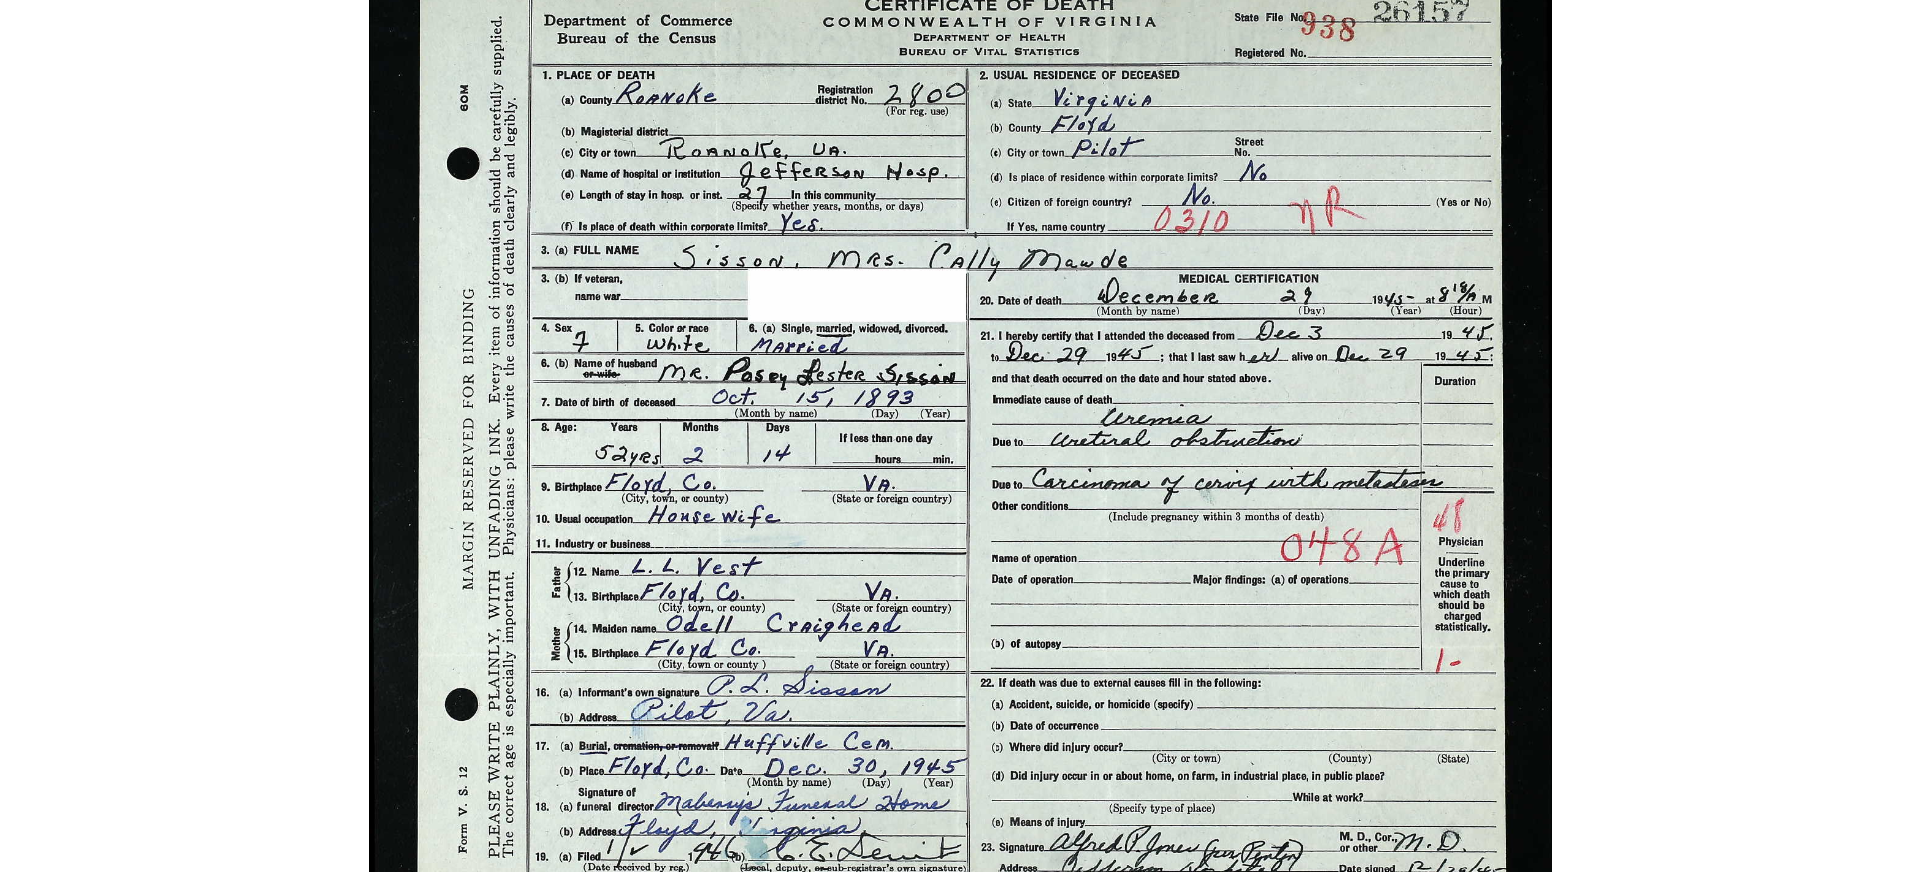 CERTIFICATE OF DEATH
Department of Commerce
Bureau of the Census
COMMONWEALTH OF VIRGINIA
DEPARTMENT OF HEALTH
BUREAU OF VITAL STATISTICS
State File No. 938 26157
Registered No.
1. PLACE OF DEATH
(a) County Roanoke Registration district No. 2800
(For reg. use)
(b) Magisterial district
(c) City or town Roanoke, Va.
(d) Name of hospital or institution Jefferson Hosp.
(e) Length of stay in hosp. or inst. 27 In this community
(Specify whether years, months, or days)
(f) Is place of death within corporate limits? Yes.
2. USUAL RESIDENCE OF DECEASED
(a) State Virginia
(b) County Floyd
(c) City or town Pilot Street No.
(d) Is place of residence within corporate limits? No
(e) Citizen of foreign country? No. (Yes or No)
If Yes, name country 0310 NR
3. (a) FULL NAME Sisson, Mrs. Cally Mawde
3. (b) If veteran,
name war
4. Sex 5. Color or race 6. (a) Single, married, widowed, divorced.
F White Married
6. (b) Name of husband or wife Mr. Posey Lester Sisson
7. Date of birth of deceased Oct. 15, 1893
(Month by name) (Day) (Year)
8. Age: Years Months Days If less than one day
52 yrs 2 14 hours min.
9. Birthplace Floyd, Co. Va.
(City, town, or county) (State or foreign country)
10. Usual occupation Housewife
11. Industry or business
Father
12. Name L. L. Vest
13. Birthplace Floyd, Co. Va.
(City, town, or county) (State or foreign country)
Mother
14. Maiden name Odell Craighead
15. Birthplace Floyd Co. Va.
(City, town or county ) (State or foreign country)
16. (a) Informant's own signature P. L. Sisson
(b) Address Pilot, Va.
17. (a) Burial, cremation, or removal? Huffville Cem.
(b) Place Floyd, Co. Date Dec. 30, 1945
(Month by name) (Day) (Year)
Signature of
18. (a) funeral director Maberry's Funeral Home
(b) Address Floyd, Virginia
19. (a) Filed 1946 (b)
(Date received by reg.) (Local, deputy, or sub-registrar's own signature)
MEDICAL CERTIFICATION
20. Date of death December 29 1945 at 8 18/A M
(Month by name) (Day) (Year) (Hour)
21. I hereby certify that I attended the deceased from Dec 3 1945,
to Dec 29 1945; that I last saw her alive on Dec 29 1945;
and that death occurred on the date and hour stated above.
Duration
Immediate cause of death
Uremia
Due to Ureteral obstruction
Due to Carcinoma of cervix with metastases
Other conditions
(Include pregnancy within 3 months of death)
48
048A
Name of operation
Date of operation Major findings: (a) of operations
Physician
Underline the primary cause to which death should be charged statistically.
(b) of autopsy
1-
22. If death was due to external causes fill in the following:
(a) Accident, suicide, or homicide (specify)
(b) Date of occurrence
(c) Where did injury occur?
(City or town) (County) (State)
(d) Did injury occur in or about home, on farm, in industrial place, in public place?
While at work?
(Specify type of place)
(e) Means of injury
23. Signature Alfred P. Jones M. D., Cor., or other M. D.
Address Date signed
60M
MARGIN RESERVED FOR BINDING
Form V. S. 12
PLEASE WRITE PLAINLY, WITH UNFADING INK. Every item of information should be carefully supplied.
The correct age is especially important. Physicians: please write the causes of death clearly and legibly.